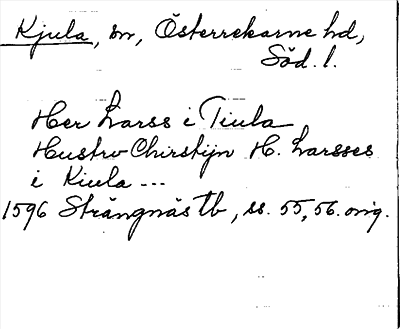 Kjula, sn, Österrekarne hd,
Söd. l.
Her Larss i Tiula
Hustro Chirstijn H. Larsses
i Kiula ---
1596 Strängnäs tb, ss. 55, 56. orig.